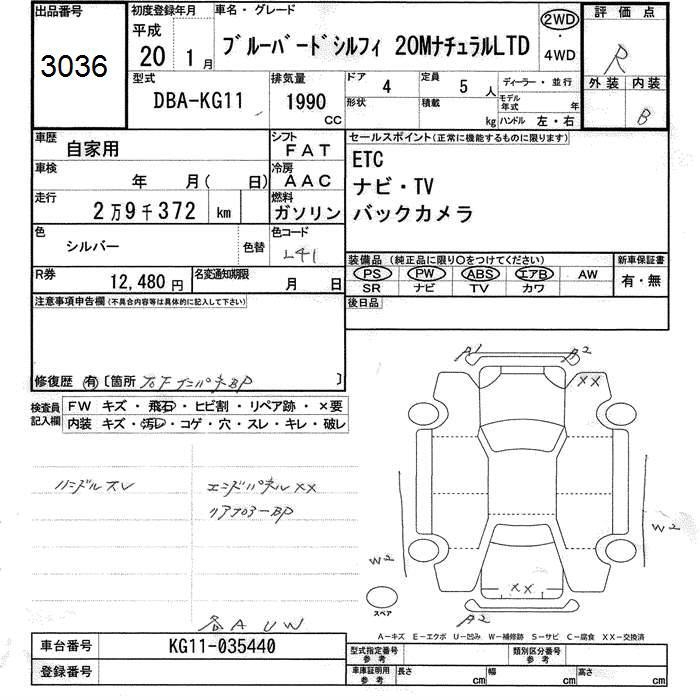 出品番号 3036
初度登録年月 平成 20 1月
車名・グレード ブルーバードシルフィ 20MナチュラルLTD
2WD・4WD
評価点 R
外装 内装 B
型式 DBA-KG11
排気量 1990 CC
ドア 4
定員 5 人
形状
積載 kg
ディーラー・並行
モデル年式 年
ハンドル 左・右
車歴 自家用
シフト FAT
車検 年 月( 日)
冷房 AAC
走行 2万9千372 km
燃料 ガソリン
色 シルバー 色替
色コード L41
R券 12,480円
名変通知期限 月 日
セールスポイント(正常に機能するものに限ります)
ETC
ナビ・TV
バックカメラ
装備品 (純正品に限り○をつけてください)
PS PW ABS エアB AW
SR ナビ TV カワ
新車保証書 有・無
後日品
注意事項申告欄 (不具合内容等は具体的に記入して下さい)
修復歴 有 〔箇所 BP 〕
検査員記入欄
FW キズ・飛石・ヒビ割・リペア跡・×要
内装 キズ・汚レ・コゲ・穴・スレ・キレ・破レ
ハンドルスレ
エンドパネルXX
リアフロアーBP
各A U W
A1 A2
XX
W2
W2
XX
A2
スペア
A－キズ E－エクボ U－凹み W－補修跡 S－サビ C－腐食 XX－交換済
車台番号 KG11-035440
登録番号
型式指定番号 参考
類別区分番号 参考
車庫証明用 参考 長さ cm 幅 cm 高さ cm